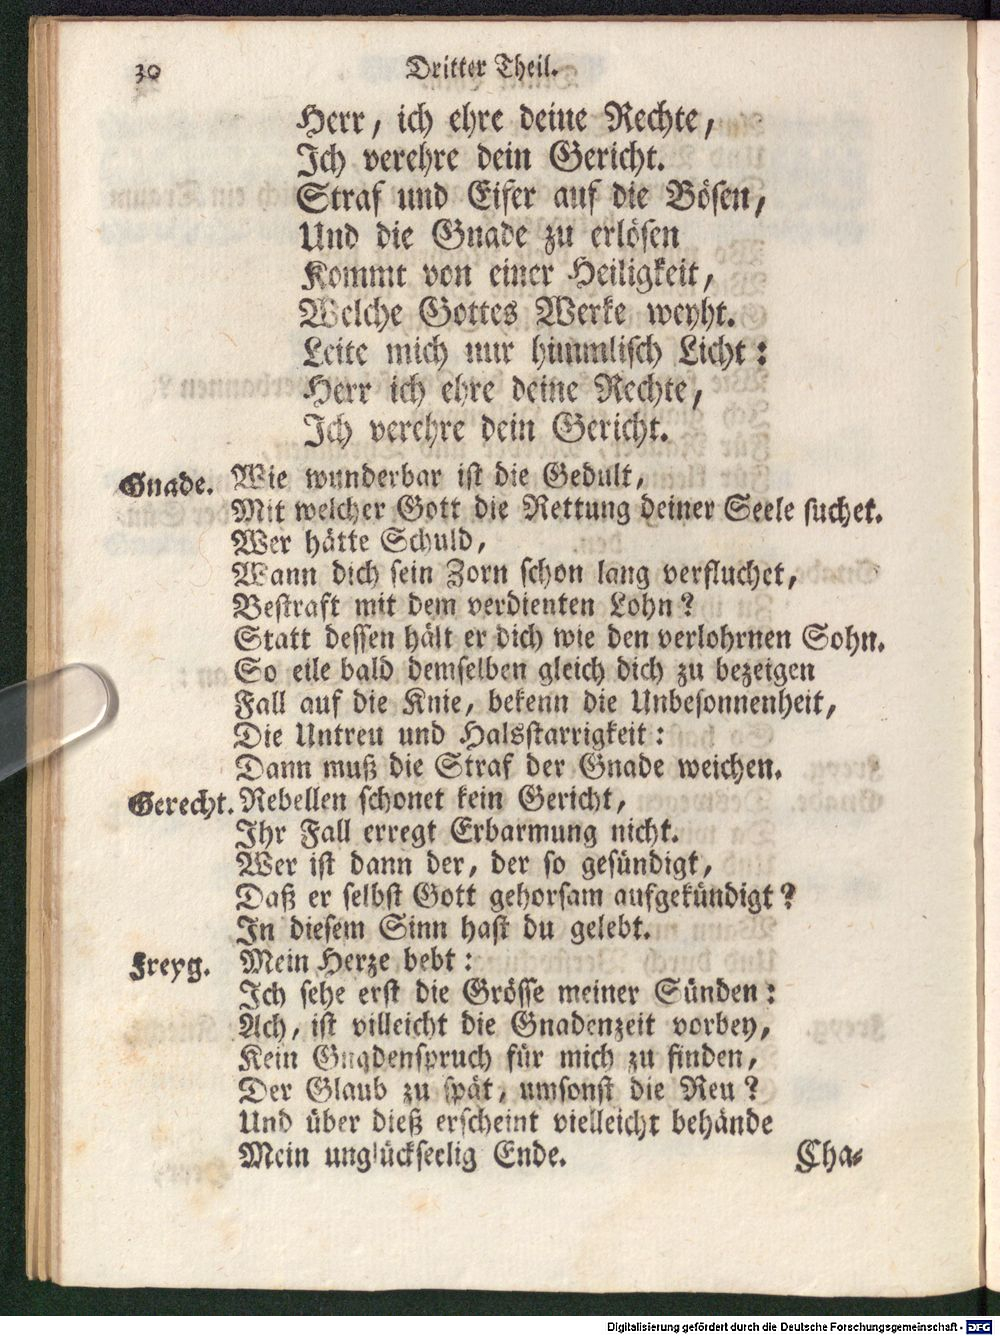 30
Dritter Theil.
Herr, ich ehre deine Rechte,
Ich verehre dein Gericht.
Straf und Eifer auf die Bösen,
Und die Gnade zu erlösen
Kommt von einer Heiligkeit,
Welche Gottes Werke weyht.
Leite mich nur himmlisch Licht:
Herr ich ehre deine Rechte,
Ich verehre dein Gericht.
Gnade. Wie wunderbar ist die Gedult,
Mit welcher Gott die Rettung deiner Seele suchet.
Wer hätte Schuld,
Wann dich sein Zorn schon lang verfluchet,
Bestraft mit dem verdienten Lohn?
Statt dessen hält er dich wie den verlohrnen Sohn.
So eile bald demselben gleich dich zu bezeigen
Fall auf die Knie, bekenn die Unbesonnenheit,
Die Untreu und Halsstarrigkeit:
Dann muß die Straf der Gnade weichen.
Gerecht. Rebellen schonet kein Gericht,
Ihr Fall erregt Erbarmung nicht.
Wer ist dann der, der so gesündigt,
Daß er selbst Gott gehorsam aufgekündigt?
In diesem Sinn hast du gelebt.
Freyg. Mein Herze bebt:
Ich sehe erst die Grösse meiner Sünden:
Ach, ist villeicht die Gnadenzeit vorbey,
Kein Gnadenspruch für mich zu finden,
Der Glaub zu spät, umsonst die Reu?
Und über dieß erscheint vielleicht behände
Mein unglückseelig Ende.
Cha-
Digitalisierung gefördert durch die Deutsche Forschungsgemeinschaft - DFG